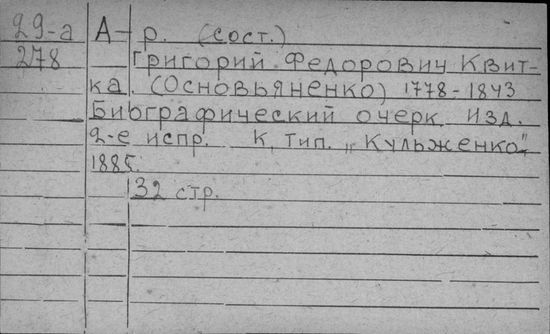 29-а А-р. (сост.)
278 Григорий Федорович Квит-
ка (Основьяненко) 1778-1843
Биографический очерк. Изд.
2-е испр. К, тип. „Кульженко",
1885.
32 стр.